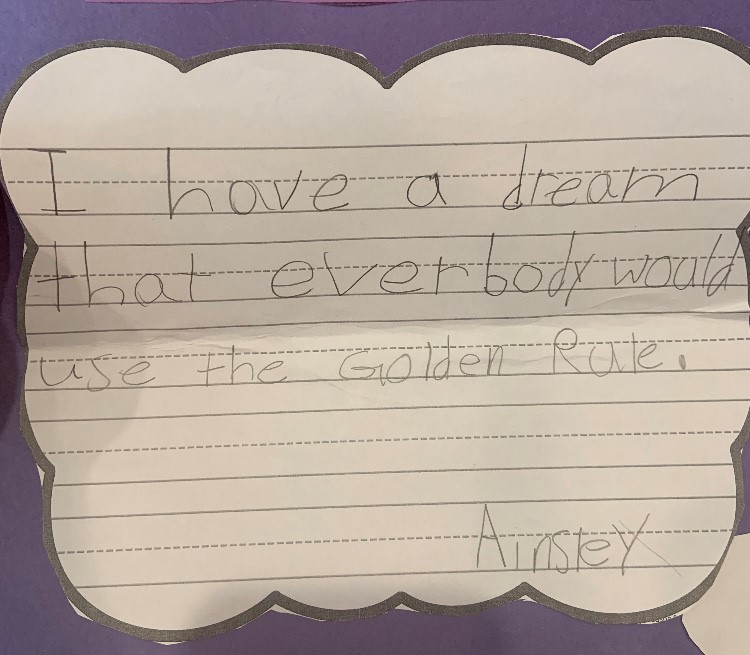 I have a dream
that everbody would
use the Golden Rule.
Ainsley